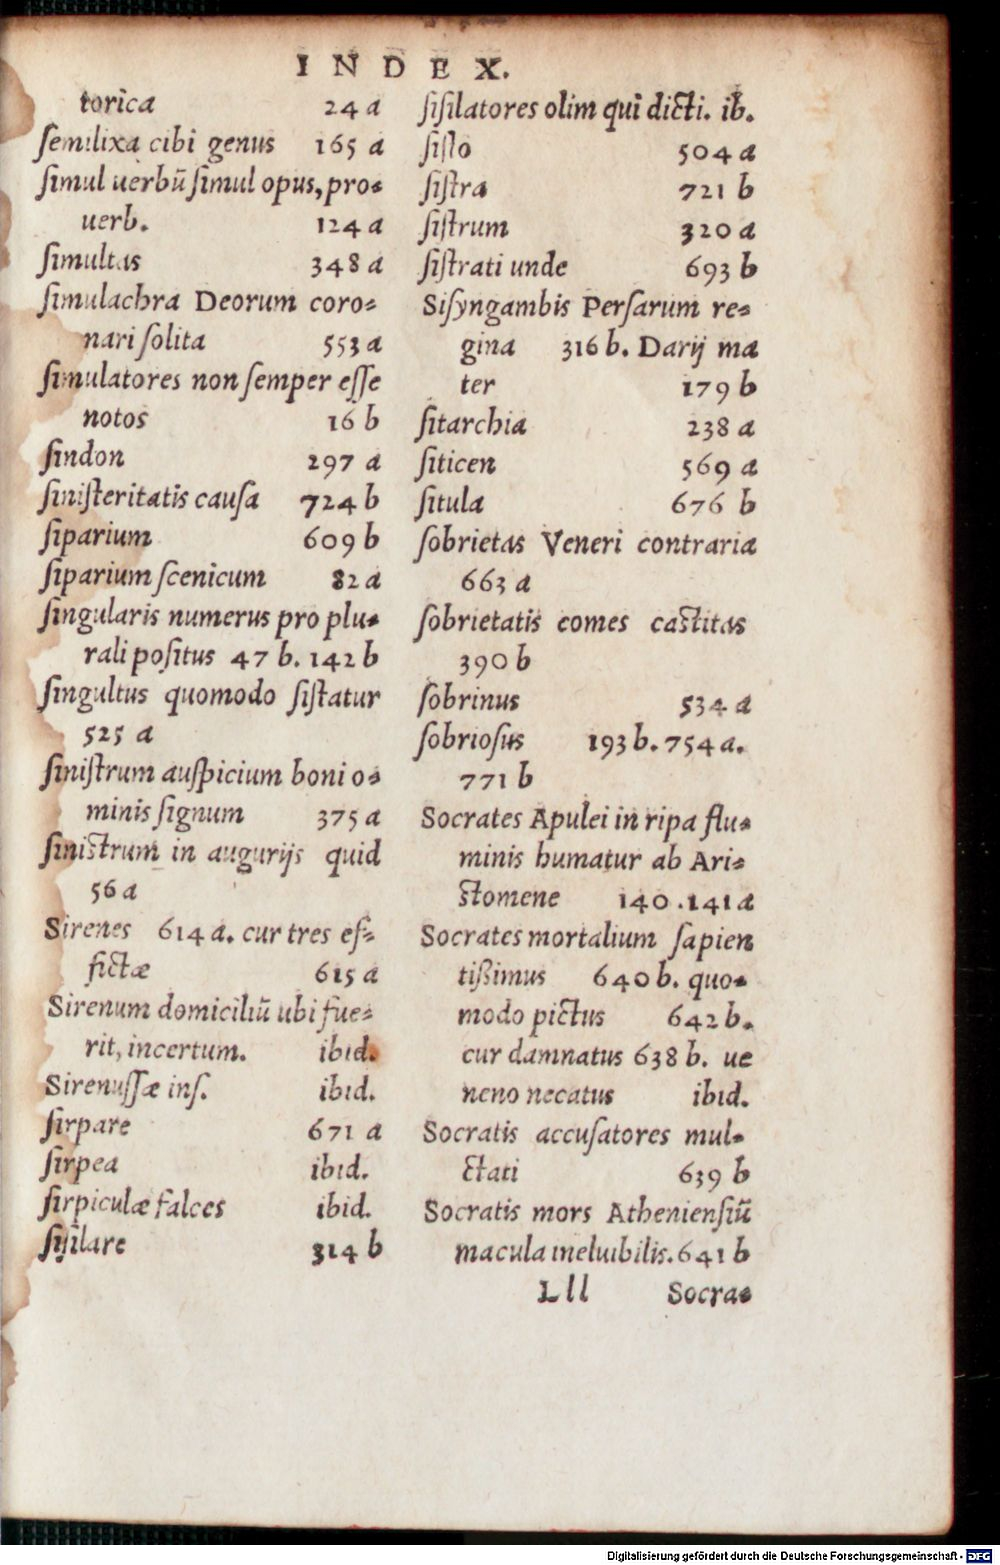 INDEX.
torica 24 a
ſemilixa cibi genus 165 a
ſimul uerbũ ſimul opus, pro-
uerb. 124 a
ſimultas 348 a
ſimulachra Deorum coro-
nari ſolita 553 a
ſimulatores non ſemper eſſe
notos 16 b
ſindon 297 a
ſiniſteritatis cauſa 724 b
ſiparium 609 b
ſiparium ſcenicum 82 a
ſingularis numerus pro plu-
rali poſitus 47 b. 142 b
ſingultus quomodo ſiſtatur
525 a
ſiniſtrum auſpicium boni o-
minis ſignum 375 a
ſiniſtrum in augurijs quid
56 a
Sirenes 614 a. cur tres ef-
fictæ 615 a
Sirenum domiciliũ ubi fue-
rit, incertum. ibid.
Sirenuſſæ inſ. ibid.
ſirpare 671 a
ſirpea ibid.
ſirpiculæ falces ibid.
ſiſilare 314 b
ſiſilatores olim qui dicti. ib.
ſiſto 504 a
ſiſtra 721 b
ſiſtrum 320 a
ſiſtrati unde 693 b
Siſyngambis Perſarum re-
gina 316 b. Darij ma
ter 179 b
ſitarchia 238 a
ſiticen 569 a
ſitula 676 b
ſobrietas Veneri contraria
663 a
ſobrietatis comes caſtitas
390 b
ſobrinus 534 a
ſobrioſus 193 b. 754 a.
771 b
Socrates Apulei in ripa flu-
minis humatur ab Ari-
ſtomene 140. 141 a
Socrates mortalium ſapien
tißimus 640 b. quo-
modo pictus 642 b.
cur damnatus 638 b. ue
neno necatus ibid.
Socratis accuſatores mul-
ctati 639 b
Socratis mors Athenienſiũ
macula ineluibilis. 641 b
Lll Socra-
Digitalisierung gefördert durch die Deutsche Forschungsgemeinschaft - DFG